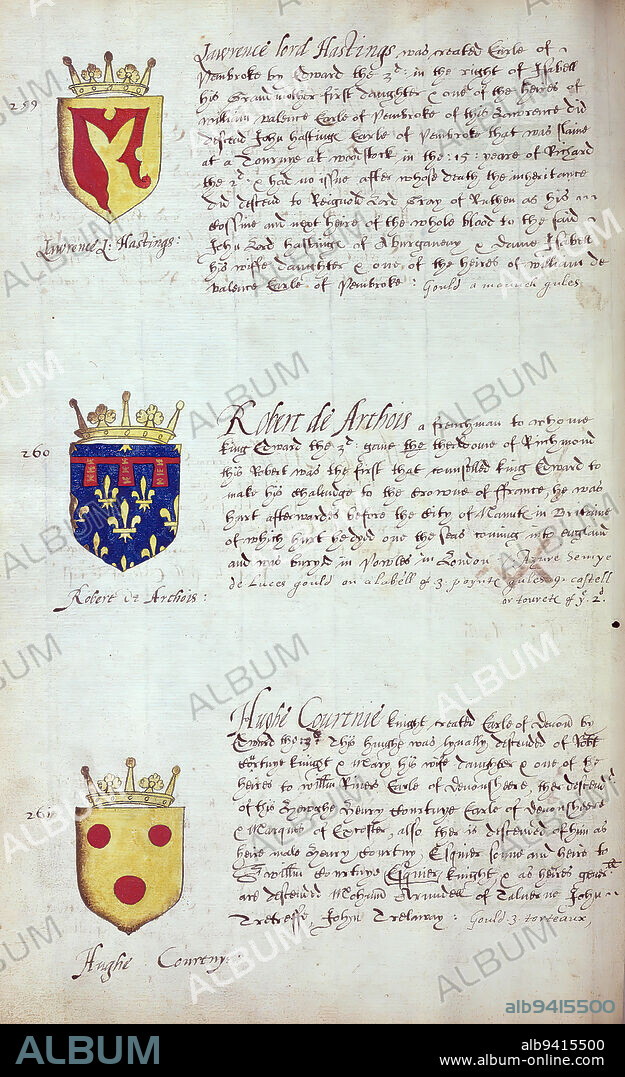 Lawrence lord Hastings was created Earle of
259
Penbroke by Edward the 3d: in the right of Isabell
his Grandmother first daughter & one of the heires of
william valence Earle of Penbroke of this Lawrence did
descend John hastinge Earle of Penbroke that was slaine
at a Tourney at woodstock in the :15: yeare of Richard
the 2d: & had no issue after whose death the inheritance
did descend to Reignold Lord Gray of Ruthen as his
Cossine and next heire of the whole blood to the said
Lawrence L: Hastings:
John Lord hastinge of Aburgaveny & dame Isabell
his wiffe daughter & one of the heires of william de
valence Earle of Penbroke: Gould a maunch gules
Robert de Arthois a frenchman to whome
260
king Edward the 3d: gave the of Richmond
this Robert was the first that counselled king Edward to
make his to the Crowne of ffrance, he was
hurt afterwardes before the City of in Britaine
of which hurt he dyed one the seas coming into England
and was buryed in Powles in London Azure Semye
de Luces gould on a labell of 3 poynts gules 9 castell
Robert de Arthois:
or tourets of ye 2d.
Hughe Courtnie knight created Earle of devon by
Edward the :3d: This hughe was lynally descended of Robt
knight & Mary his wife daughter & one of the
heires to willm Rivers Earle of devonsheere, ther descend
of this Henry Courtnye Earle of devonsheere
261
& Marques of Exester, also ther is discended of him as
heire male Henry Courtny Esquier sonne and heire to
Sr willm Courtnye Esquier knight & as heires generall
are descended Arundell of Talverne John
John Trelaway: Gould 3 torteaux
Hughe Courtny:
ALBUM
alb9415500
ALBUM
alb9415500
www.album-online.com